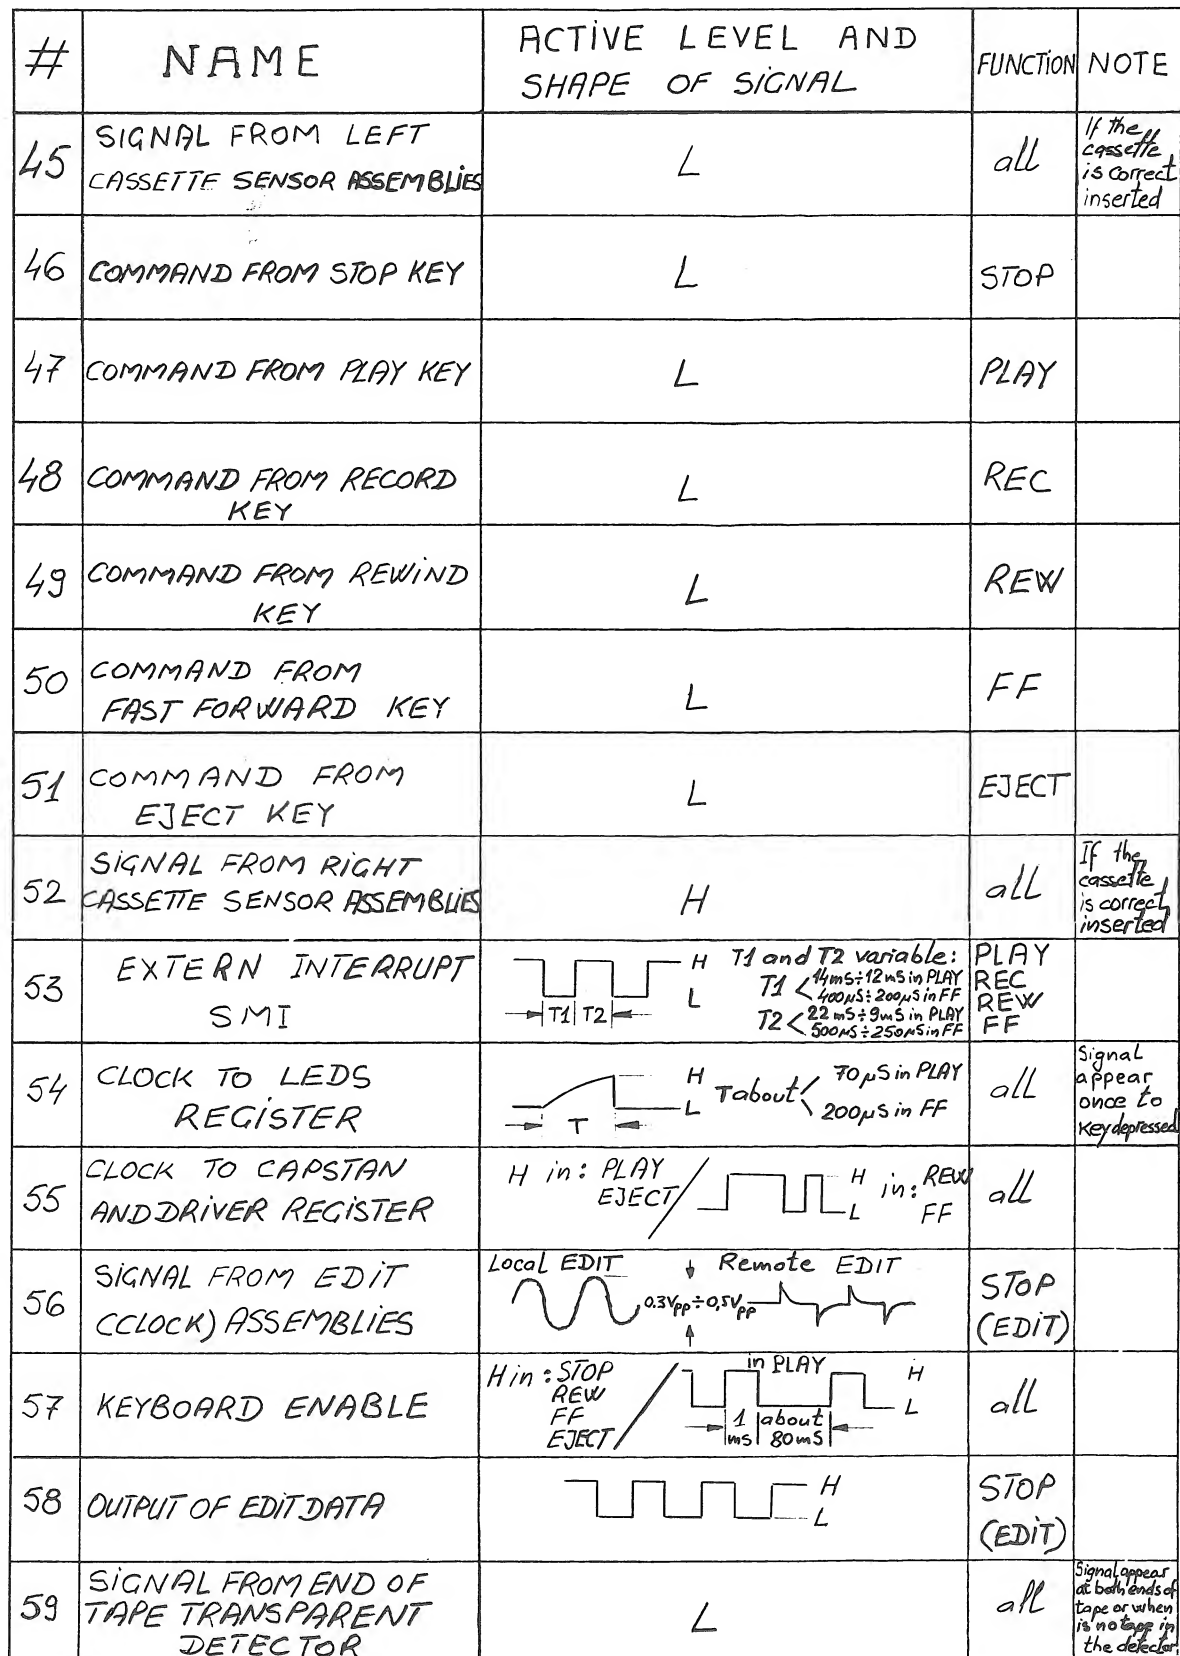 # NAME ACTIVE LEVEL AND SHAPE OF SIGNAL FUNCTION NOTE
45 SIGNAL FROM LEFT CASSETTE SENSOR ASSEMBLIES L all If the cassette is correct inserted
46 COMMAND FROM STOP KEY L STOP
47 COMMAND FROM PLAY KEY L PLAY
48 COMMAND FROM RECORD KEY L REC
49 COMMAND FROM REWIND KEY L REW
50 COMMAND FROM FAST FORWARD KEY L FF
51 COMMAND FROM EJECT KEY L EJECT
52 SIGNAL FROM RIGHT CASSETTE SENSOR ASSEMBLIES H all If the cassette is correct inserted
53 EXTERN INTERRUPT SMI H L T1 T2 T1 and T2 variable: T1 < 14mS÷12mS in PLAY 400µS÷200µS in FF T2 < 22mS÷9mS in PLAY 500µS÷250µS in FF PLAY REC REW FF
54 CLOCK TO LEDS REGISTER H L T T about 70µS in PLAY 200µS in FF all Signal appear once to key depressed
55 CLOCK TO CAPSTAN AND DRIVER REGISTER H in: PLAY EJECT / H L in: REW FF all
56 SIGNAL FROM EDIT CCLOCK) ASSEMBLIES Local EDIT 0.3Vpp÷0,5Vpp Remote EDIT STOP (EDIT)
57 KEYBOARD ENABLE H in: STOP REW FF EJECT / in PLAY H L 1 mS about 80mS all
58 OUTPUT OF EDIT DATA H L STOP (EDIT)
59 SIGNAL FROM END OF TAPE TRANSPARENT DETECTOR L all Signal appear at both ends of tape or when is no tape in the detector